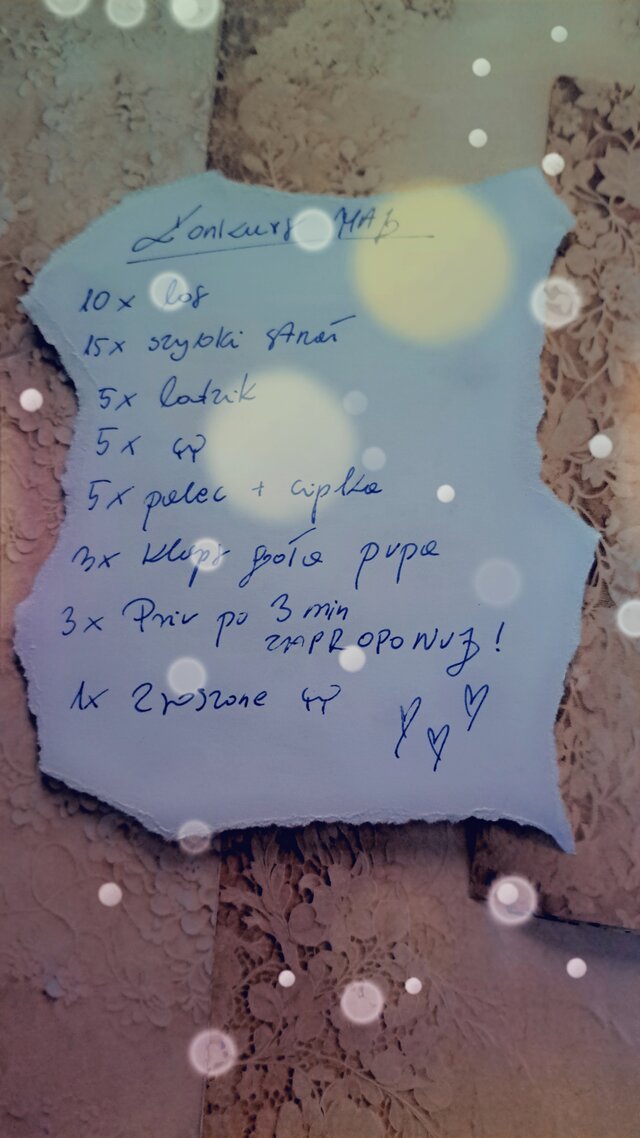 Konkurs MAJ
10x los
15x szybki strzał
5x lodzik
5x
5x palec + cipka
3x Klaps goła pupa
3x Priv po 3 min
ZAPROPONUJ!
1x Zroszone